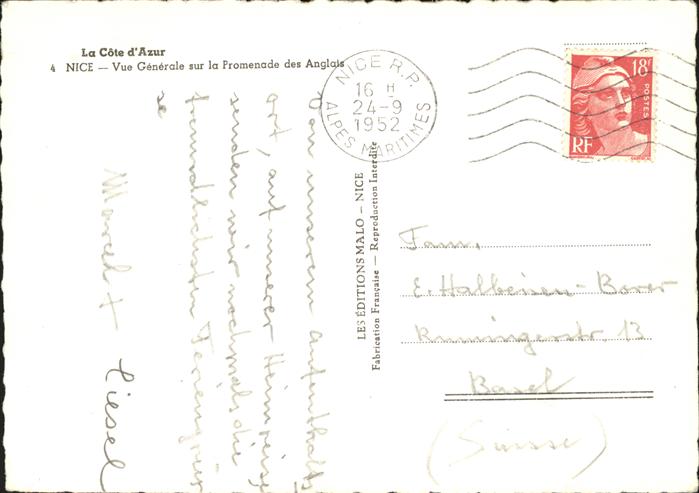 La Côte d'Azur
4 NICE — Vue Générale sur la Promenade des Anglais
NICE R.P.
16 H
24-9
1952
ALPES MARITIMES
18F
POSTES
RF
Von unserem Aufenthalts
ort, auf unserer Heimreise,
senden wir nochmals die
freundlichsten Feriengrüs
se
Marcel + Liesel
LES ÉDITIONS MALO — NICE
Fabrication Française — Reproduction Interdite
Fam.
E. Halbeisen-Borer
13
Basel
(Suisse)